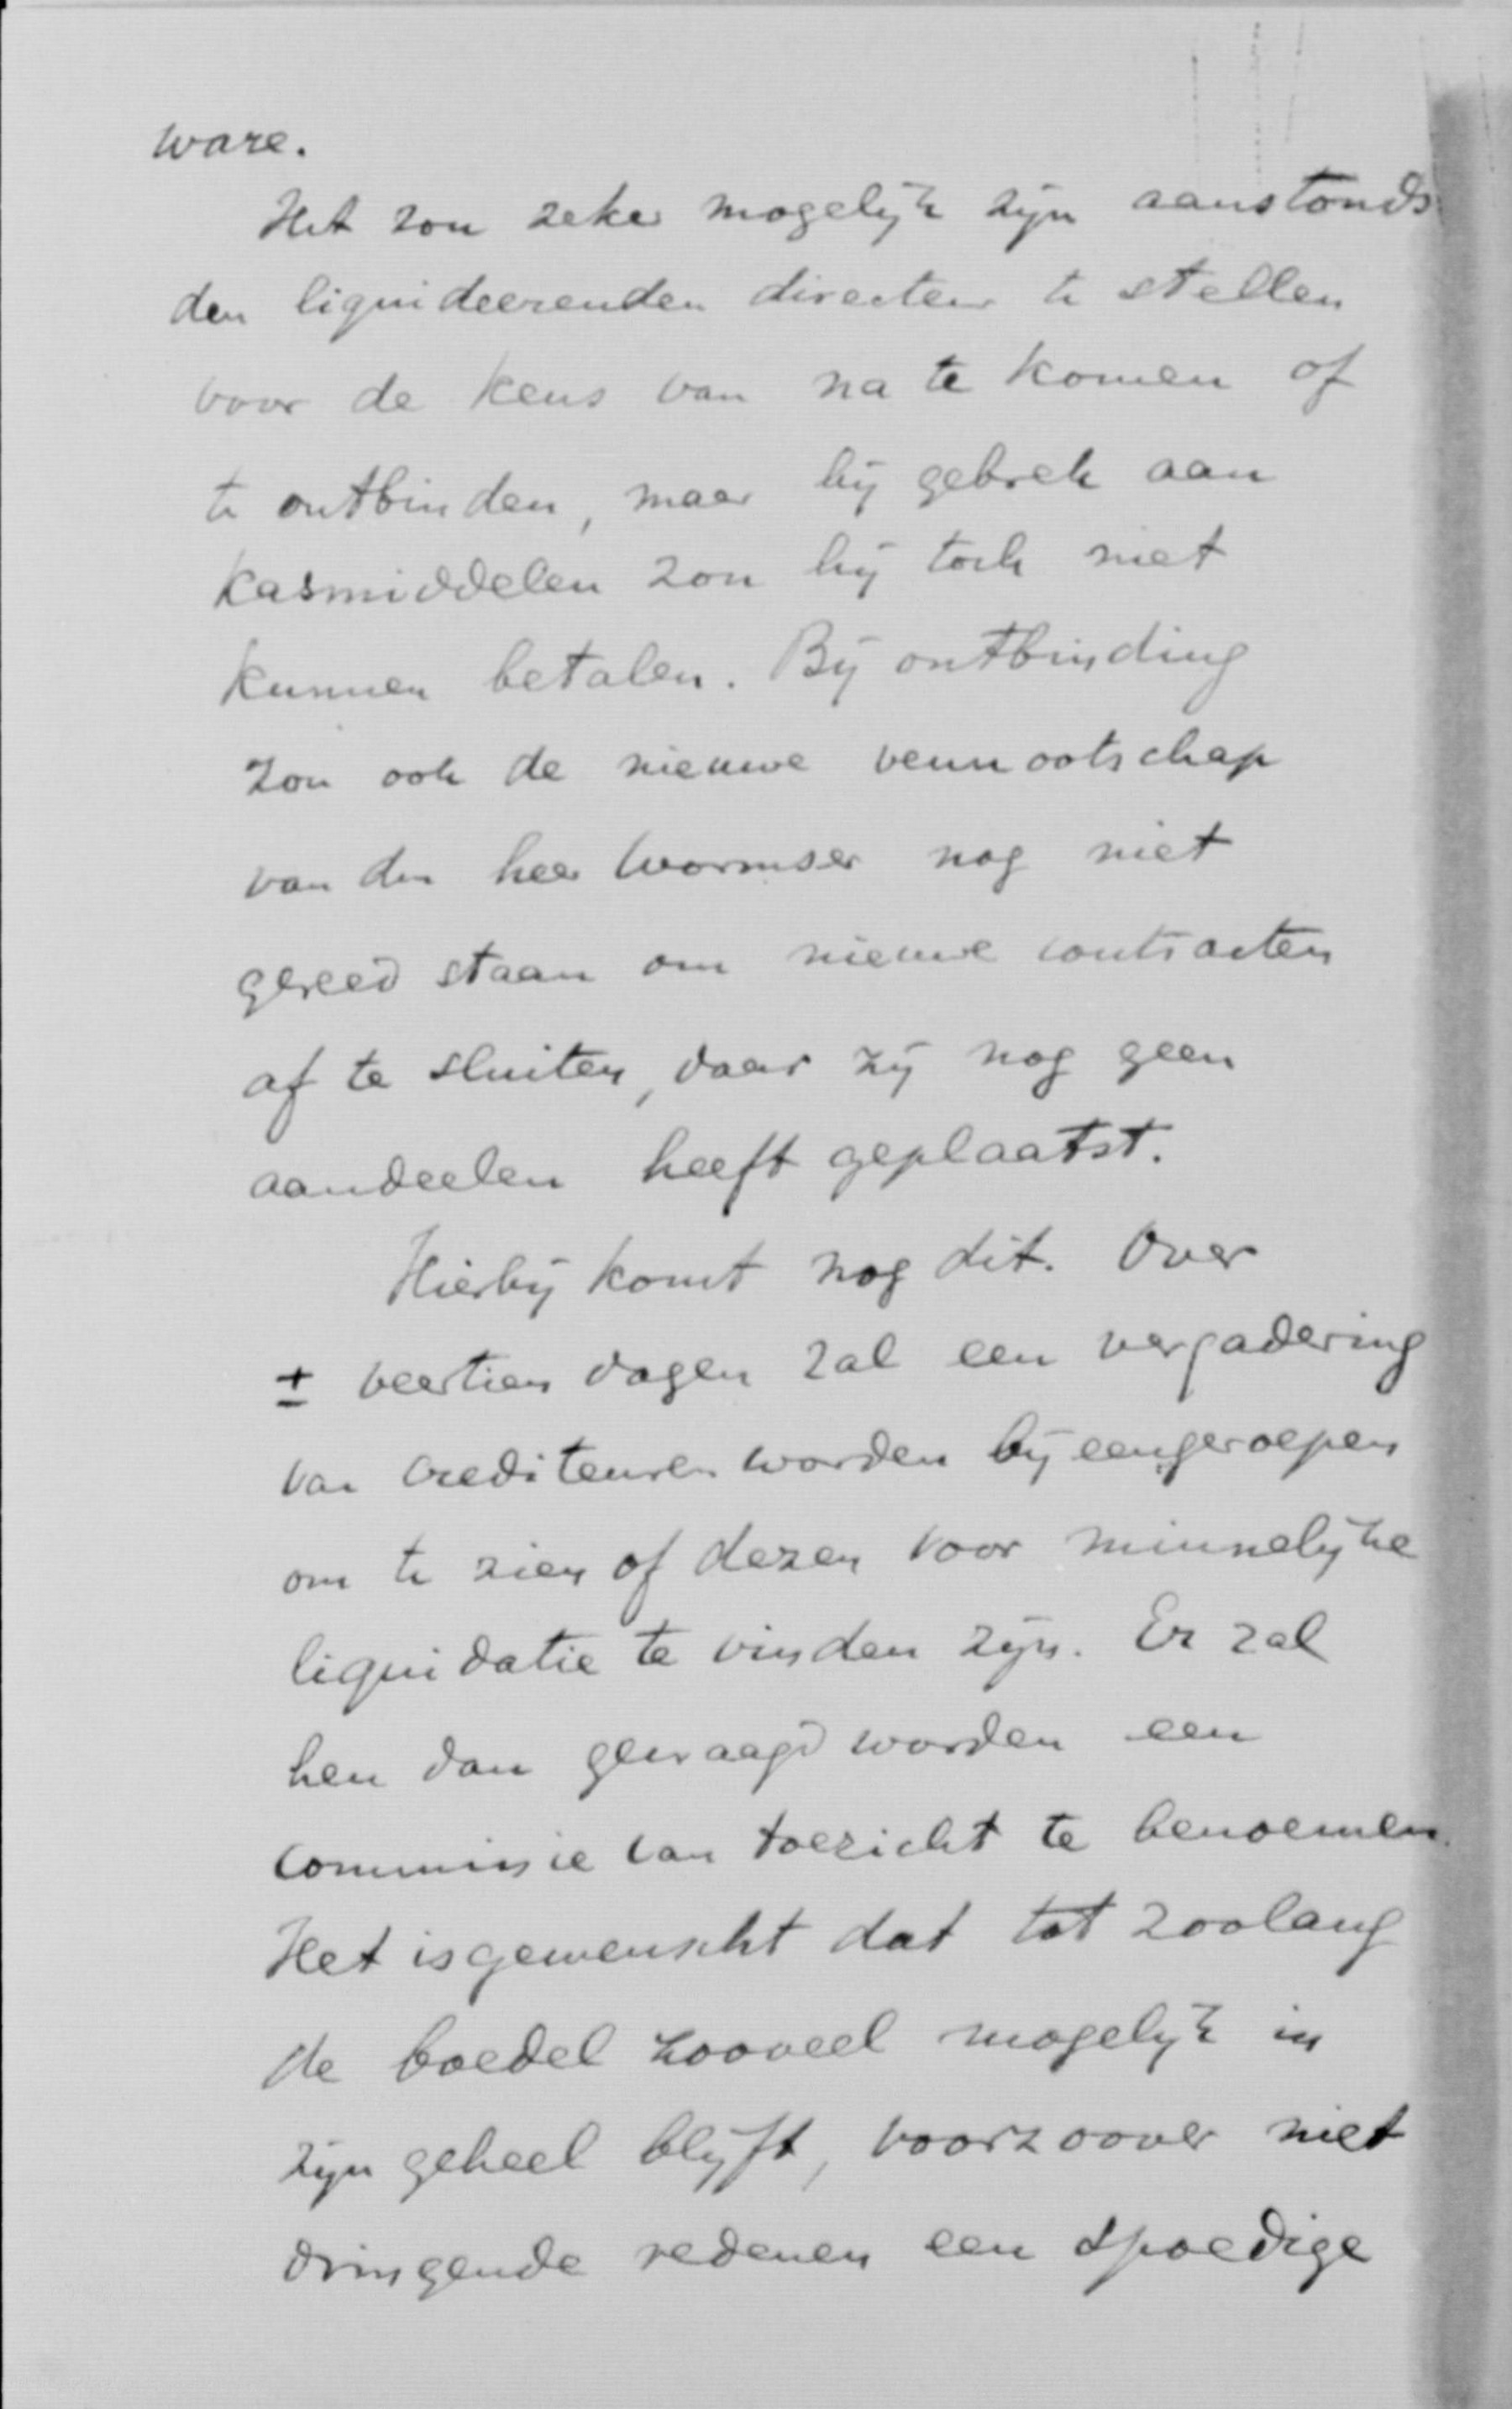 ware.
Het zou zeker mogelijk zijn aanstonds
den liquideerenden directeur te stellen
voor de keus van na te komen of
te ontbinden, maar bij gebrek aan
kasmiddelen zou hij toch niet
kunnen betalen. Bij ontbinding
zou ook de nieuwe vennootschap
van den heer Wormser nog niet
gereed staan om nieuwe contracten
af te sluiten, daar zij nog geen
aandeelen heeft geplaatst.
Hierbij komt nog dit. Over
± veertien dagen zal een vergadering
van crediteuren worden bijeengeroepen
om te zien of dezen voor minnelijke
liquidatie te vinden zijn. Er zal
hen dan gevraagd worden een
commissie van toezicht te benoemen.
Het is gewenscht dat tot zoolang
de boedel zooveel mogelijk in
zijn geheel blijft, voorzoover niet
dringende redenen een spoedige